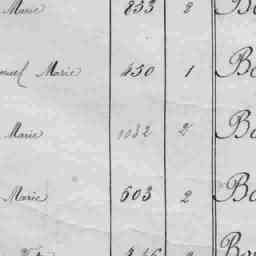 Marie 853 2 Bo
Marie 450 1 Bo
Marie 1032 2 Bo
Marie 603 2 Bo
Bou